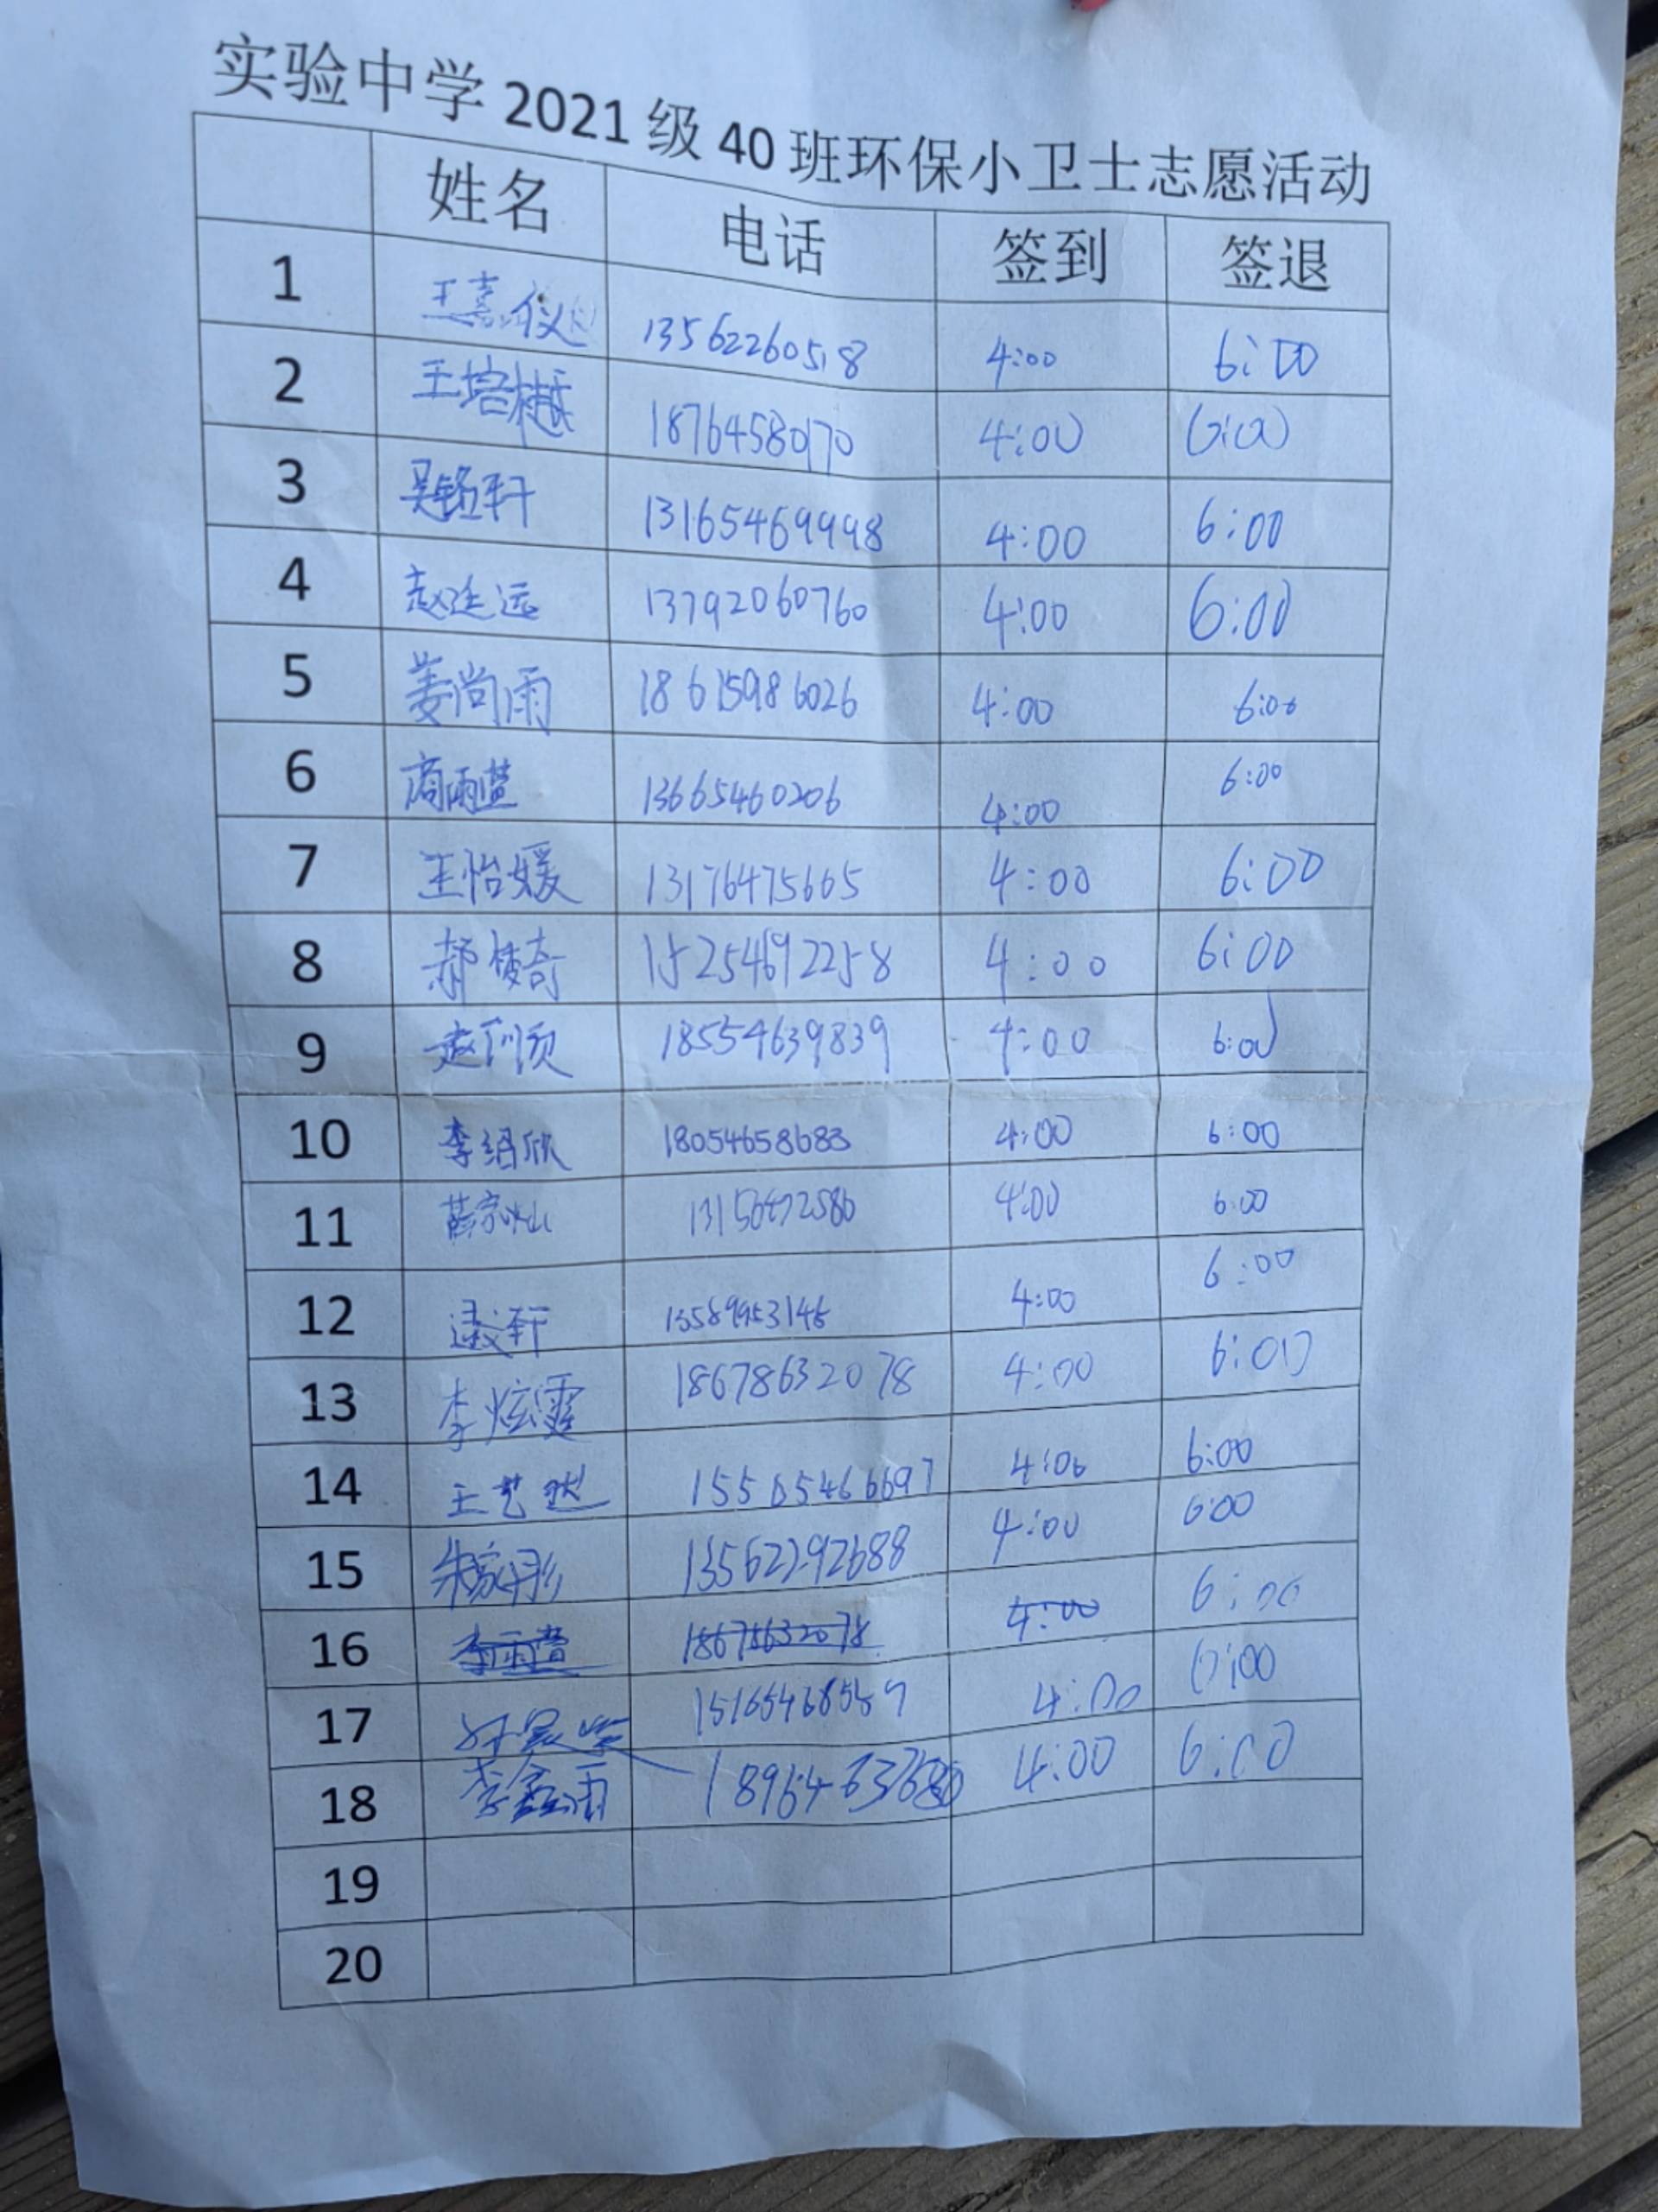 实验中学 2021 级 40 班环保小卫士志愿活动
姓名 电话 签到 签退
1 王嘉仪 13562260518 4:00 6:00
2 王培樾 18764580170 4:00 6:00
3 吴铭轩 13165469998 4:00 6:00
4 赵廷远 13792060760 4:00 6:00
5 姜尚雨 18615986026 4:00 6:00
6 商雨萱 13665460206 4:00 6:00
7 王怡媛 13176475665 4:00 6:00
8 郝梓奇 15254692258 4:00 6:00
9 18554639839 4:00 6:00
10 李绍欣 18054658683 4:00 6:00
11 薛宗灿 4:00 6:00
12 逯轩 4:00 6:00
13 李炫霆 18678632078 4:00 6:00
14 王艺 15505466697 4:00 6:00
15 朱家彤 13562292688 4:00 6:00
16 李雨萱 18678632078 4:00 6:00
17 4:00 6:00
18 李鑫雨 4:00 6:00
19
20